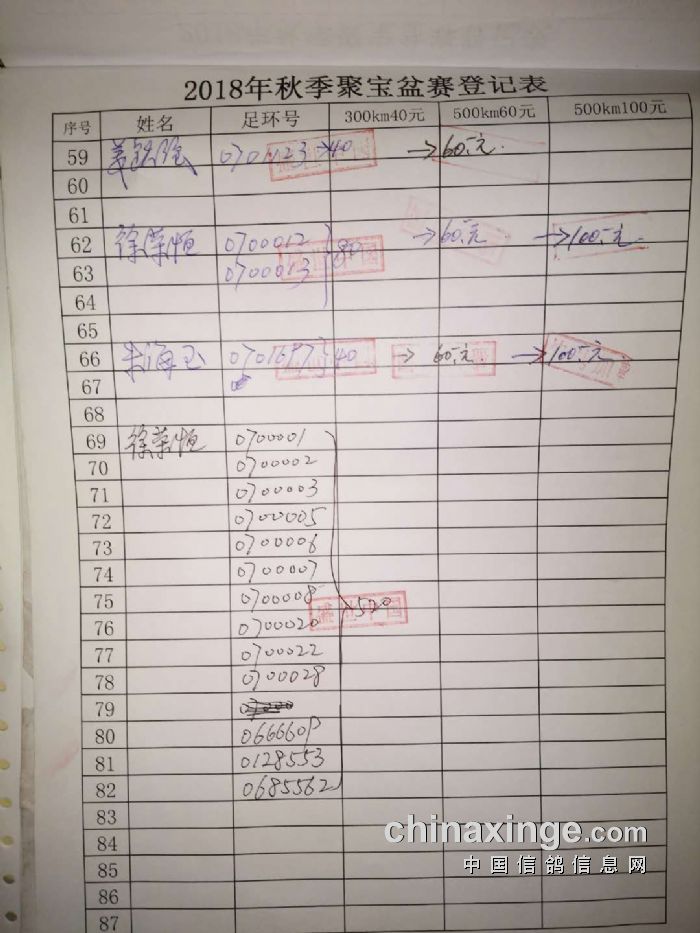 2018年秋季聚宝盆赛登记表
序号 姓名 足环号 300km40元 500km60元 500km100元
59 0701123 →40 →60.元.
60
61
62 徐荣恒 0700012 80 →60.元 →100.元.
63 0700013
64
65
66 朱海玉 40 → 60.元 →100.元.
67
68
69 徐荣恒 0700001
70 0700002
71 0700003
72 0700005
73 0700006
74 0700007
75 0700008 520
76 0700020
77 0700022
78 0700028
79
80 066660P
81 0128553
82 0685562
83
84
85
86
87
chinaxinge.com
中国信鸽信息网